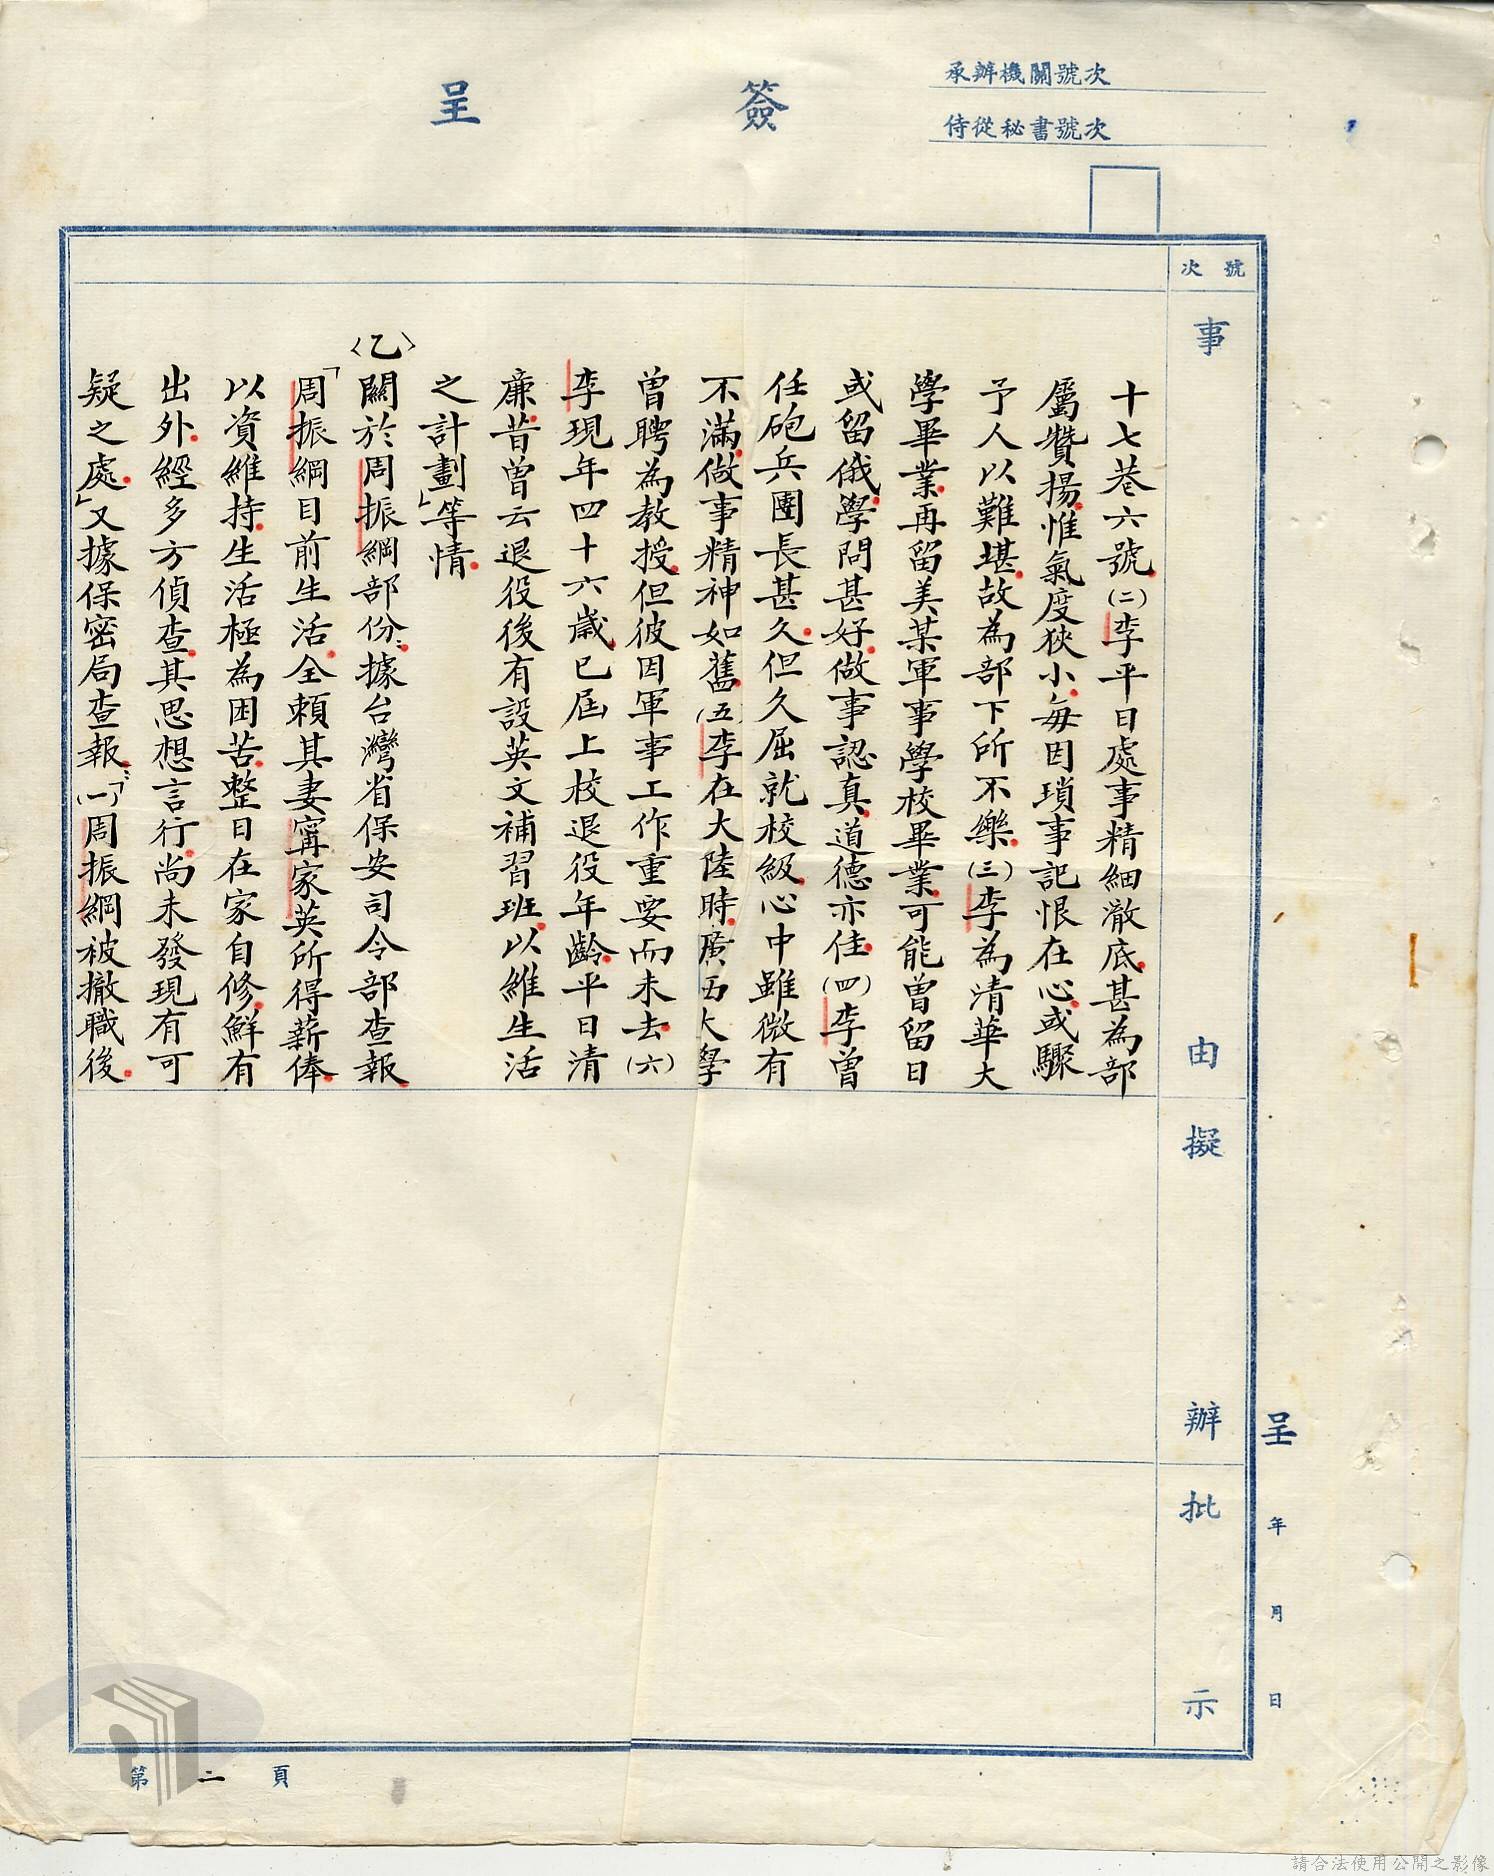 承辦機關號次
侍從秘書號次
簽呈
號次
事由
擬辦
批示
呈 年 月 日
十七巷六號(二)李平日處事精細澈底甚為部
屬贊揚惟氣度狹小每因瑣事記恨在心或驟
予人以難堪故為部下所不樂(三)李為清華大
學畢業再留美某軍事學校畢業可能曾留日
或留俄學問甚好做事認真道德亦佳(四)李曾
任砲兵團長甚久但久屈就校級心中雖微有
不滿做事精神如舊(五)李在大陸時廣西大學
曾聘為教授但彼因軍事工作重要而未去(六)
李現年四十六歲已屆上校退役年齡平日清
廉昔曾云退役後有設英文補習班以維生活
之計劃」等情
〈乙〉關於周振綱部份:據台灣省保安司令部查報
「周振綱目前生活全賴其妻甯家英所得薪俸
以資維持生活極為困苦整日在家自修鮮有
出外經多方偵查其思想言行尚未發現有可
疑之處」又據保密局查報:「(一)周振綱被撤職後
第二頁
請合法使用公開之影像